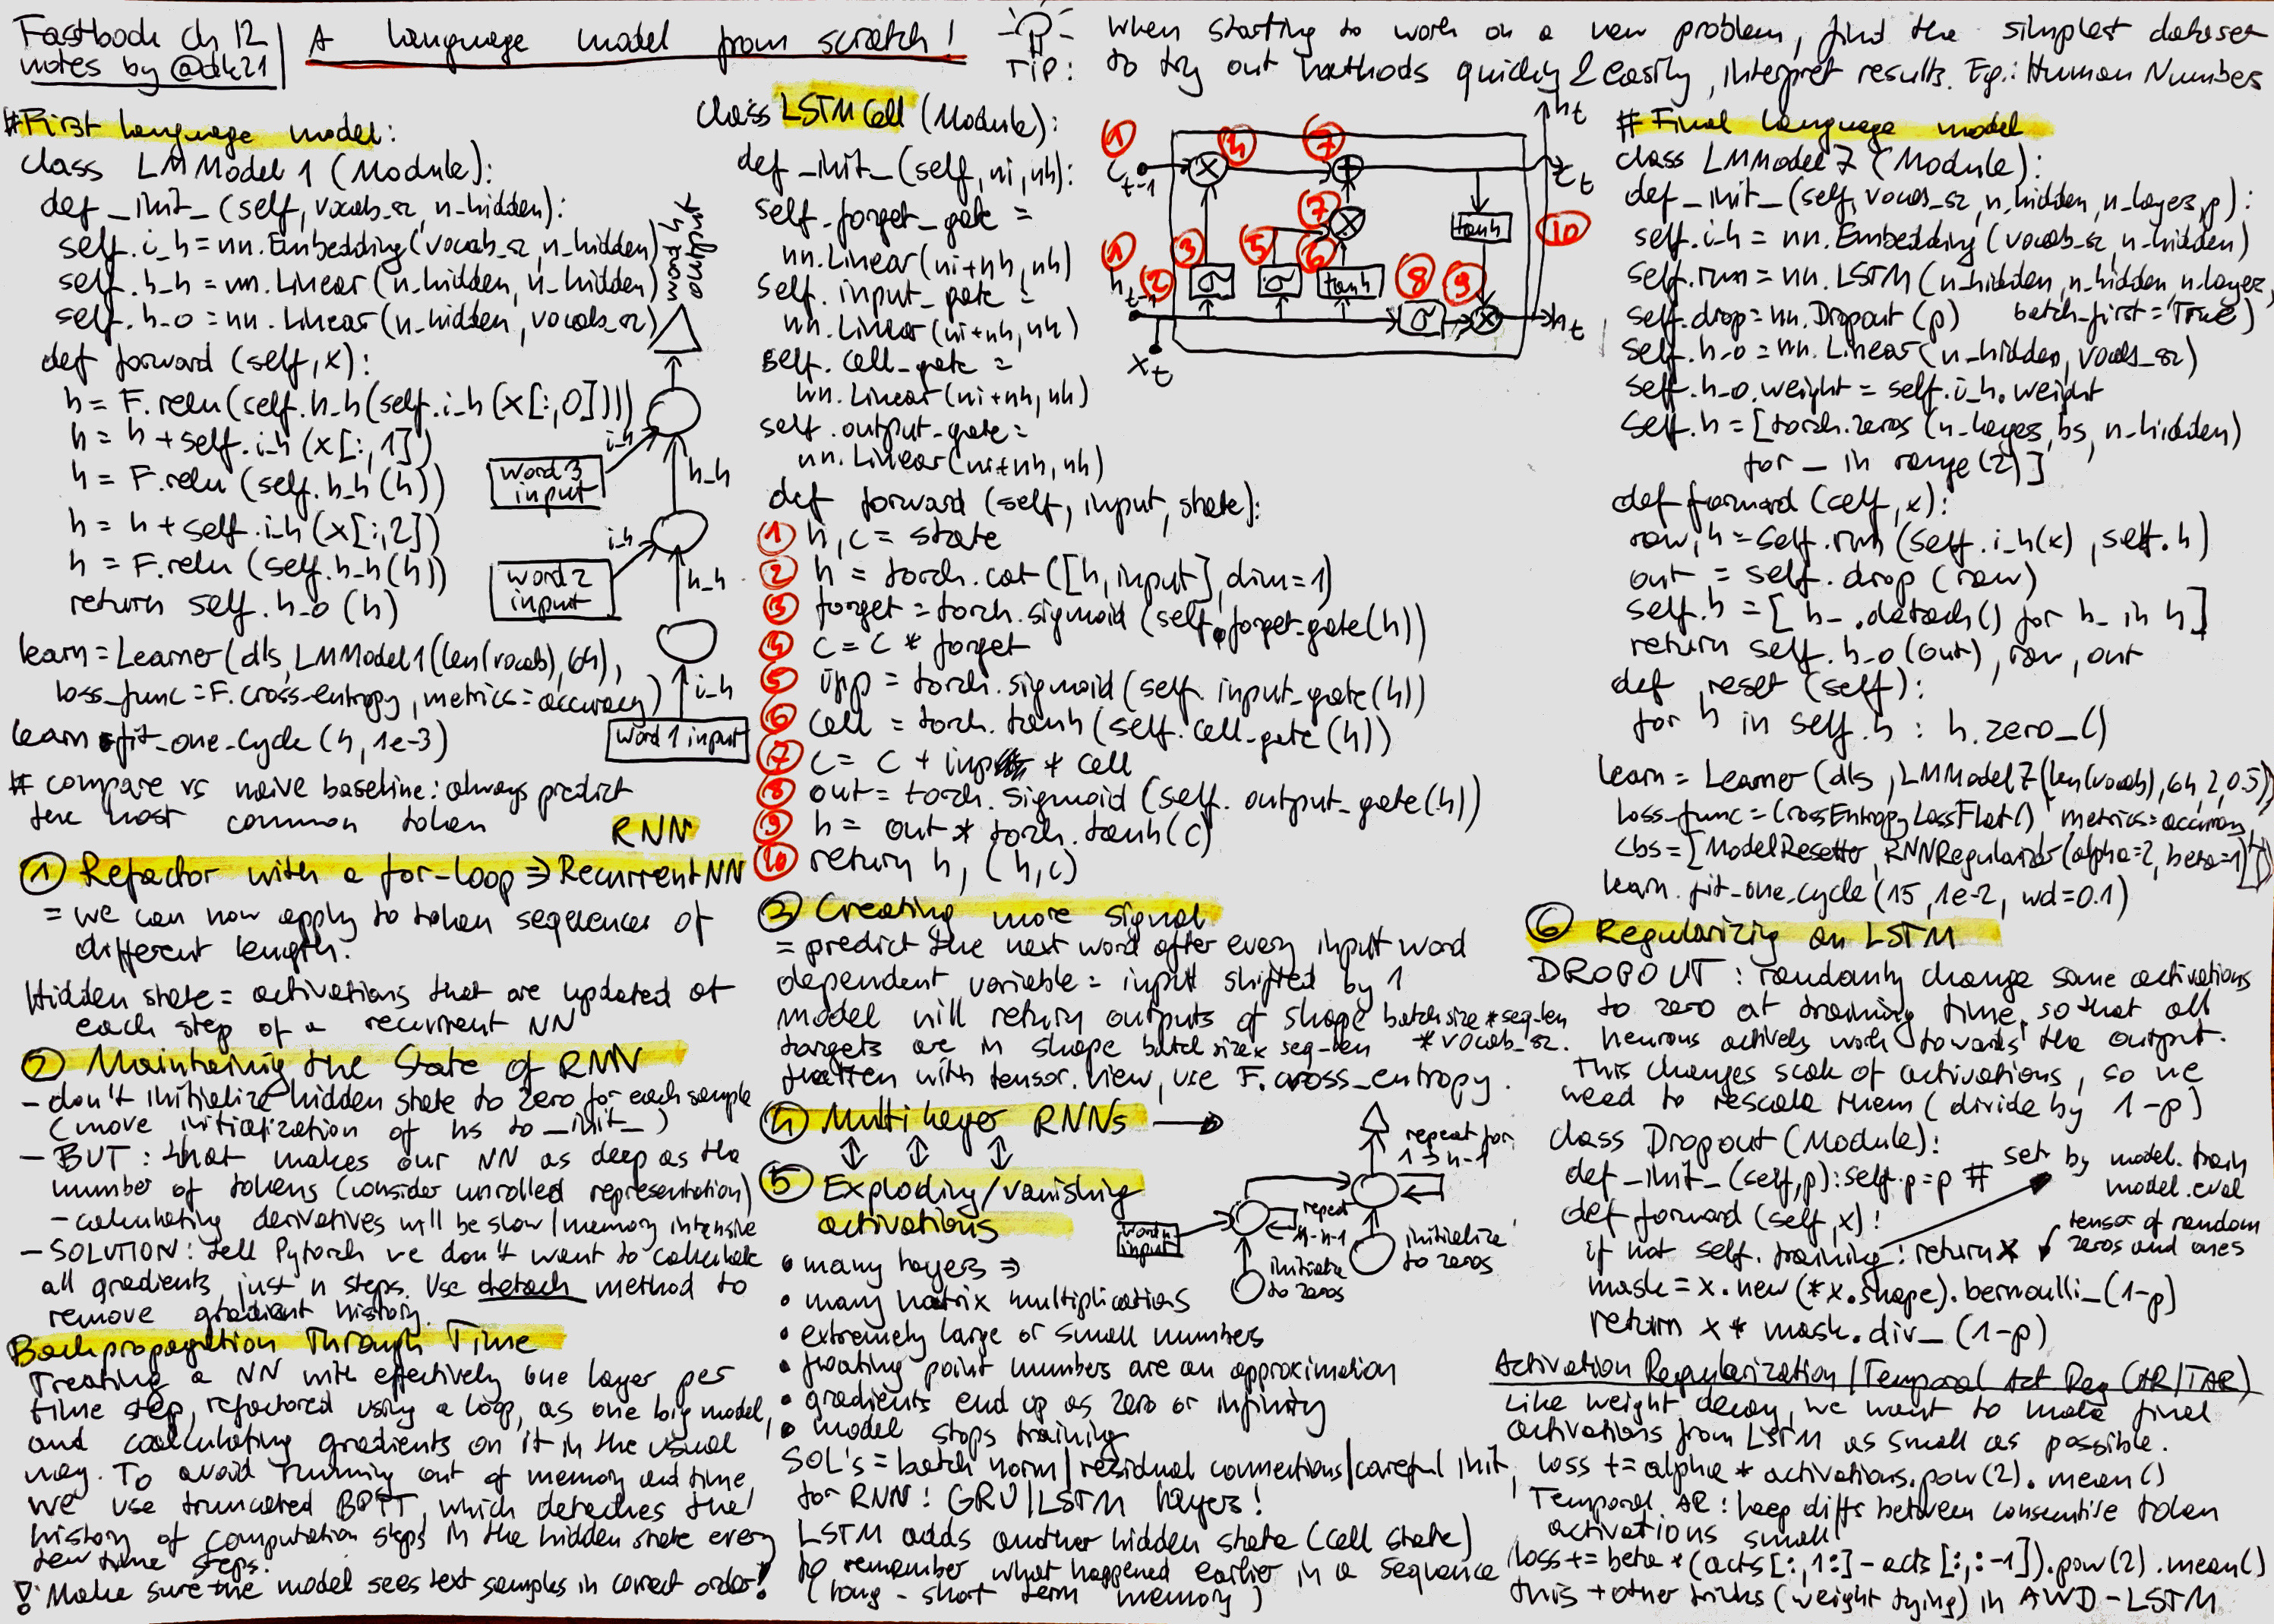 Fastbook ch 12
notes by @dk21
A language model from scratch!
TIP:
When starting to work on a new problem, find the simplest dataset
to try out methods quickly & easily, interpret results. Eg.: Human Numbers
#First language model:
class LMModel1 (Module):
def _init_ (self, vocab_sz, n_hidden):
self.i_h = nn.Embedding (vocab_sz, n_hidden)
self.h_h = nn.Linear (n_hidden, n_hidden)
self.h_o = nn.Linear (n_hidden, vocab_sz)
def forward (self, x):
h = F.relu (self.h_h (self.i_h (x[:,0])))
h = h + self.i_h (x[:,1])
h = F.relu (self.h_h (h))
h = h + self.i_h (x[:,2])
h = F.relu (self.h_h (h))
return self.h_o (h)
learn = Learner (dls, LMModel1 (len(vocab), 64),
loss_func = F.cross_entropy, metrics = accuracy)
learn.fit_one_cycle (4, 1e-3)
# compare vs naive baseline: always predict
the most common token
word 4
output
word 3
input
i_h
h_h
word 2
input
i_h
h_h
i_h
word 1 input
RNN
① Refactor with a for-loop ⇒ Recurrent NN
= we can now apply to token sequences of
different length.
Hidden state = activations that are updated at
each step of a recurrent NN
② Maintaining the State of RNN
- don't initialize hidden state to zero for each sample
(move initialization of hs to _init_)
- BUT: that makes our NN as deep as the
number of tokens (consider unrolled representation)
- calculating derivatives will be slow / memory intensive
- SOLUTION: tell Pytorch we don't want to calculate
all gradients, just n steps. Use detach method to
remove gradient history.
Backpropagation Through Time
Treating a NN with effectively one layer per
time step, refactored using a loop, as one big model,
and calculating gradients on it in the usual
way. To avoid running out of memory and time,
we use truncated BPTT, which detaches the
history of computation steps in the hidden state every
few time steps.
! Make sure the model sees text samples in correct order!
class LSTM Cell (Module):
def _init_ (self, ni, nh):
self.forget_gate =
nn.Linear (ni+nh, nh)
self.input_gate =
nn.Linear (ni+nh, nh)
self.cell_gate =
nn.Linear (ni+nh, nh)
self.output_gate =
nn.Linear (ni+nh, nh)
def forward (self, input, state):
① h, c = state
② h = torch.cat ([h, input], dim=1)
③ forget = torch.sigmoid (self.forget_gate(h))
④ c = c * forget
⑤ inp = torch.sigmoid (self.input_gate(h))
⑥ cell = torch.tanh (self.cell_gate(h))
⑦ c = c + inp * cell
⑧ out = torch.sigmoid (self.output_gate(h))
⑨ h = out * torch.tanh(c)
⑩ return h, (h,c)
① ④ ⑦ h_t
C_t-1 × + C_t
⑦ × tanh ⑩
① ② ③ ⑤ ⑥ ⑧ ⑨
h_t-1 σ σ tanh σ × h_t
x_t
③ Creating more signal
= predict the next word after every input word
dependent variable = input shifted by 1
model will return outputs of shape batch size * seq_len
* vocab_sz.
targets are in shape batch size x seq_len
flatten with tensor.view, use F.cross_entropy.
④ Multilayer RNNs →
⑤ Exploding/vanishing
activations
• many layers ⇒
• many matrix multiplications
• extremely large or small numbers
• floating point numbers are an approximation
• gradients end up as zero or infinity
• model stops training
SOL's = batch norm / residual connections / careful init,
for RNN: GRU/LSTM layers!
LSTM adds another hidden state (cell state)
to remember what happened earlier in a sequence
(long-short term memory)
repeat for
1 → n-1
word n
input
repeat
1-n-1
initialize
to zeros
initialize
to zeros
# Final language model
class LMModel7 (Module):
def _init_ (self, vocab_sz, n_hidden, n_layers, p):
self.i_h = nn.Embedding (vocab_sz, n_hidden)
self.rnn = nn.LSTM (n_hidden, n_hidden, n_layers,
batch_first = 'True')
self.drop = nn.Dropout (p)
self.h_o = nn.Linear (n_hidden, vocab_sz)
self.h_o.weight = self.i_h.weight
self.h = [torch.zeros (n_layers, bs, n_hidden)
for _ in range (2)]
def forward (self, x):
raw, h = self.rnn (self.i_h(x), self.h)
out = self.drop (raw)
self.h = [h_.detach() for h_ in h]
return self.h_o (out), raw, out
def reset (self):
for h in self.h : h.zero_()
learn = Learner (dls, LMModel7 (len(vocab), 64, 2, 0.5),
loss_func = CrossEntropyLossFlat(), metrics = accuracy,
cbs = [ModelResetter, RNNRegularizer (alpha=2, beta=1)])
learn.fit_one_cycle (15, 1e-2, wd=0.1)
⑥ Regularizing an LSTM
DROPOUT: randomly change some activations
to zero at training time, so that all
neurons actively work towards the output.
This changes scale of activations, so we
need to rescale them (divide by 1-p)
class Dropout (Module):
def _init_ (self, p): self.p = p #
set by model.train
model.eval
def forward (self, x):
if not self.training: return x
tensor of random
zeros and ones
mask = x.new (*x.shape).bernoulli_(1-p)
return x * mask.div_(1-p)
Activation Regularization / Temporal Act Reg (AR/TAR)
Like weight decay, we want to make final
activations from LSTM as small as possible.
loss += alpha * activations.pow(2).mean()
Temporal AR: keep diffs between consecutive token
activations small
loss += beta * (acts[:,1:] - acts[:,:-1]).pow(2).mean()
this + other tricks (weight tying) in AWD-LSTM